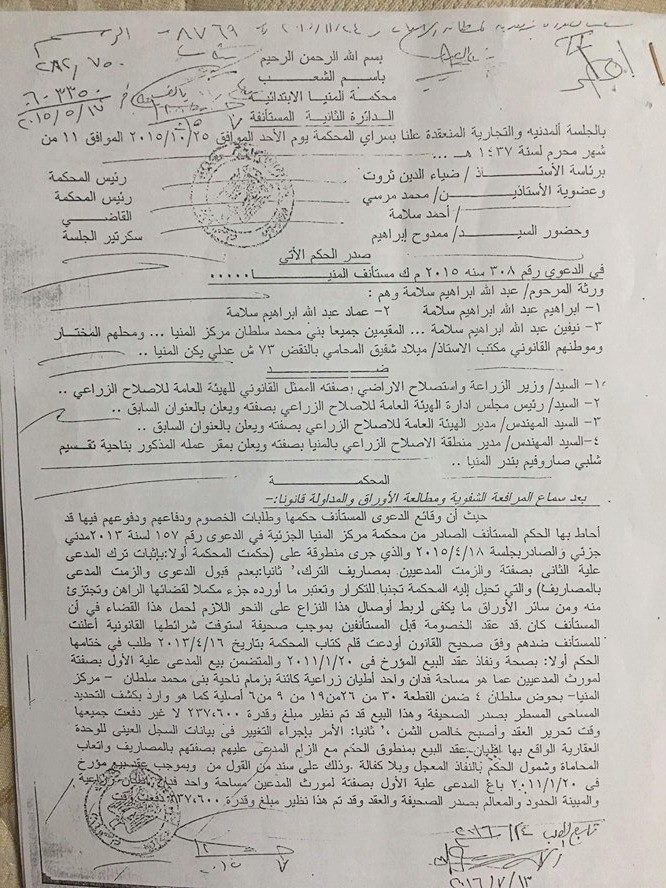 ٨٧٦٩
الرسم
٢٨٢,٧٥٠
٦٠٣٣٥٠
٢٠١٥/٥/١٧
بسم الله الرحمن الرحيم
باسم الشعب
محكمة المنيا الابتدائية
الدائرة الثانية المستأنفة
بالجلسة المدنيه والتجارية المنعقدة علنا بسراي المحكمة يوم الأحد الموافق ٢٠١٥/١٠/٢٥ الموافق ١١ من
شهر محرم لسنة ١٤٣٧ هـ ...
برئاسة الأستاذ / ضياء الدين ثروت رئيس المحكمة
وعضوية الأستاذين / محمد مرسي رئيس المحكمة
/ أحمد سلامة القاضي
وحضور السيد / ممدوح إبراهيم سكرتير الجلسة
صدر الحكم الأتي
في الدعوي رقم ٣٠٨ سنه ٢٠١٥ م ك مستأنف المنيا .....
ورثة المرحوم/ عبد الله ابراهيم سلامة وهم :
١- ابراهيم عبد الله ابراهيم سلامة ٢- عماد عبد الله ابراهيم سلامة
٣- نيفين عبد الله ابراهيم سلامة ... المقيمين جميعا بني محمد سلطان مركز المنيا ... ومحلهم المختار
وموطنهم القانوني مكتب الاستاذ/ ميلاد شفيق المحامي بالنقض ٧٣ ش عدلي يكن المنيا ..
ضد
١- السيد/ وزير الزراعة واستصلاح الاراضي بصفته الممثل القانوني للهيئة العامة للاصلاح الزراعي ..
٢- السيد/ رئيس مجلس ادارة الهيئة العامة للاصلاح الزراعي بصفته ويعلن بالعنوان السابق ..
٣- السيد المهندس/ مدير الهيئة العامة للاصلاح الزراعي بصفته ويعلن بالعنوان السابق ..
٤- السيد المهندس/ مدير منطقة الاصلاح الزراعي بالمنيا بصفته ويعلن بمقر عمله المذكور بناحية تقسيم
شلبي صاروفيم بندر المنيا ..
المحكمة
بعد سماع المرافعة الشفوية ومطالعة الأوراق والمداولة قانونا:-
حيث أن وقائع الدعوى المستأنف حكمها وطلبات الخصوم ودفاعهم ودفوعهم فيها قد
أحاط بها الحكم المستأنف الصادر من محكمة مركز المنيا الجزئية في الدعوى رقم ١٥٧ لسنة ٢٠١٣مدني
جزئي والصادربجلسة ٢٠١٥/٤/١٨ والذي جرى منطوقة على (حكمت المحكمة أولا:بإثبات ترك المدعى
علية الثانى بصفتة والزمت المدعيين بمصاريف الترك، ثانيا:بعدم قبول الدعوى والزمت المدعى
بالمصاريف) والتي تحيل إليه المحكمة تجنبا للتكرار وتعتبر ما أورده جزء مكملا لقضائها الراهن وتجتزئ
منه ومن سائر الأوراق ما يكفى لربط أوصال هذا النزاع على النحو اللازم لحمل هذا القضاء في أن
المستأنف كان قد عقد الخصومة قبل المستأنفين بموجب صحيفة استوفت شرائطها القانونية أعلنت
للمستأنف ضدهم وفق صحيح القانون أودعت قلم كتاب المحكمة بتاريخ ٢٠١٣/٤/١٦ طلب في ختامها
الحكم أولا: بصحة ونفاذ عقد البيع المؤرخ فى ٢٠١١/١/٢٠ والمتضمن بيع المدعى علية الأول بصفتة
لمورث المدعيين عما هو مساحة فدان واحد أطيان زراعية كائنة بزمام ناحية بنى محمد سلطان – مركز
المنيا- بحوض سلطان ٤ ضمن القطعة ٣٠ من ٢٦من١٩ من ٩ من٦ أصلية كما هو وارد بكشف التحديد
المساحى المسطر بصدر الصحيفة وهذا البيع قد تم نظير مبلغ وقدرة ٢٣٧,٦٠٠ لا غير دفعت جميعها
وقت تحرير العقد وأصبح خالص الثمن ،، ثانيا: الأمر بإجراء التغيير فى بيانات السجل العينى للوحدة
العقارية الواقع بها الطيان عقد البيع بمنطوق الحكم مع الزام المدعى عليهم بصفتهم بالمصاريف واتعاب
المحاماة وشمول الحكم بالنفاذ المعجل وبلا كفالة .وذلك على سند من القول من وبموجب عقد بيع مؤرخ
فى ٢٠١١/١/٢٠ باع المدعى علية الأول بصفتة لمورث المدعيين مساحة واحد فدان
والمبينة الحدود والمعالم بصدر الصحيفة والعقد وقد تم هذا نظير مبلغ وقدرة ٢٣٧,٦٠٠ دفعت
٢٠١٦/٧/١٣